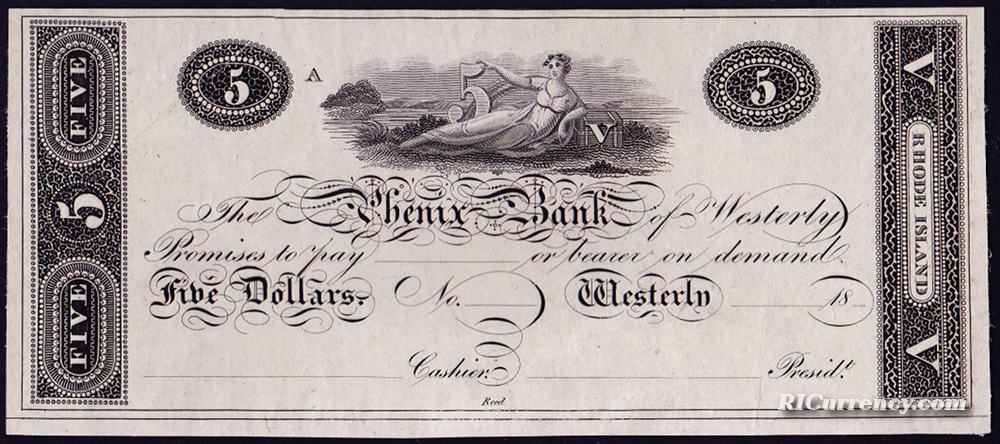 FIVE
5
FIVE
5
A
5
V
5
V
RHODE ISLAND
V
The Phenix Bank of Westerly
Promises to pay or bearer on demand.
Five Dollars. No. Westerly 18
Cashier. Presidt.
Reed
RICurrency.com